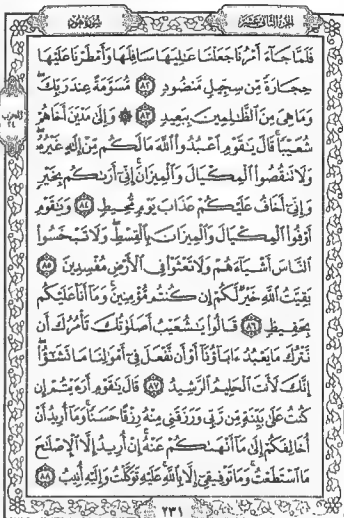 الجزء الثاني عشر
سورة هود
فَلَمَّا جَآءَ أَمْرُنَا جَعَلْنَا عَٰلِيَهَا سَافِلَهَا وَأَمْطَرْنَا عَلَيْهَا
حِجَارَةً مِّن سِجِّيلٍ مَّنضُودٍ ٨٢ مُّسَوَّمَةً عِندَ رَبِّكَۖ
وَمَا هِىَ مِنَ ٱلظَّٰلِمِينَ بِبَعِيدٍ ٨٣ ۞ وَإِلَىٰ مَدْيَنَ أَخَاهُمْ
شُعَيْبًاۚ قَالَ يَٰقَوْمِ ٱعْبُدُوا۟ ٱللَّهَ مَا لَكُم مِّنْ إِلَٰهٍ غَيْرُهُۥۖ
وَلَا تَنقُصُوا۟ ٱلْمِكْيَالَ وَٱلْمِيزَانَۚ إِنِّىٓ أَرَىٰكُم بِخَيْرٍ
وَإِنِّىٓ أَخَافُ عَلَيْكُمْ عَذَابَ يَوْمٍ مُّحِيطٍ ٨٤ وَيَٰقَوْمِ
أَوْفُوا۟ ٱلْمِكْيَالَ وَٱلْمِيزَانَ بِٱلْقِسْطِۖ وَلَا تَبْخَسُوا۟
ٱلنَّاسَ أَشْيَآءَهُمْ وَلَا تَعْثَوْا۟ فِى ٱلْأَرْضِ مُفْسِدِينَ ٨٥
بَقِيَّتُ ٱللَّهِ خَيْرٌ لَّكُمْ إِن كُنتُم مُّؤْمِنِينَۚ وَمَآ أَنَا۠ عَلَيْكُم
بِحَفِيظٍ ٨٦ قَالُوا۟ يَٰشُعَيْبُ أَصَلَوٰتُكَ تَأْمُرُكَ أَن
نَّتْرُكَ مَا يَعْبُدُ ءَابَآؤُنَآ أَوْ أَن نَّفْعَلَ فِىٓ أَمْوَٰلِنَا مَا نَشَٰٓؤُا۟ۖ
إِنَّكَ لَأَنتَ ٱلْحَلِيمُ ٱلرَّشِيدُ ٨٧ قَالَ يَٰقَوْمِ أَرَءَيْتُمْ إِن
كُنتُ عَلَىٰ بَيِّنَةٍ مِّن رَّبِّى وَرَزَقَنِى مِنْهُ رِزْقًا حَسَنًاۚ وَمَآ أُرِيدُ أَنْ
أُخَالِفَكُمْ إِلَىٰ مَآ أَنْهَىٰكُمْ عَنْهُۚ إِنْ أُرِيدُ إِلَّا ٱلْإِصْلَٰحَ
مَا ٱسْتَطَعْتُۚ وَمَا تَوْفِيقِىٓ إِلَّا بِٱللَّهِۚ عَلَيْهِ تَوَكَّلْتُ وَإِلَيْهِ أُنِيبُ ٨٨
٢٣١